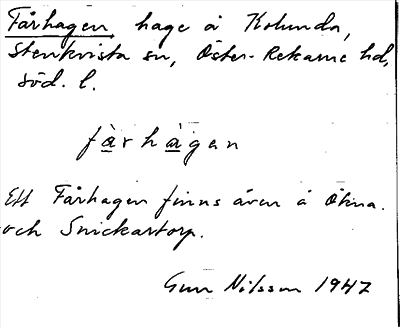 Fårhagen, hage å Kolunda,
Stenkvista sn, Öster-Rekarne hd,
Söd. l.
fàrhàgen
Ett Fårhagen finns även å Ökna
och Snickartorp.
Gun Nilsson 1947